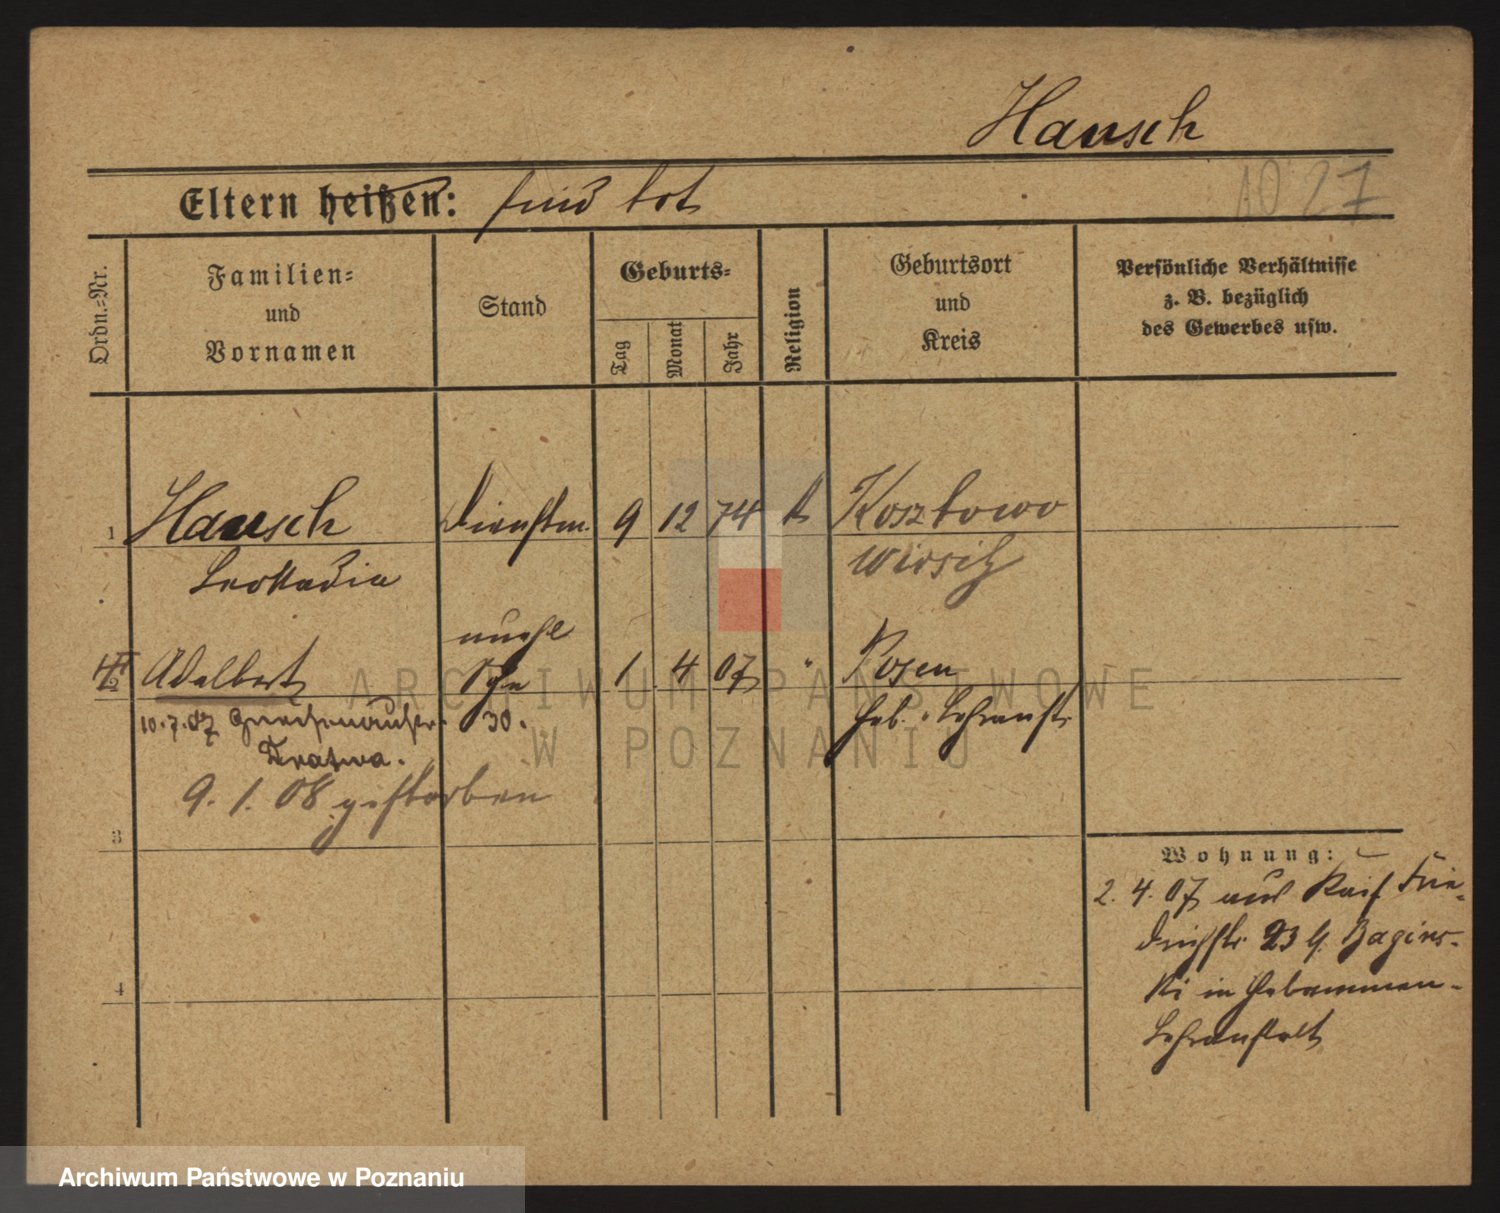 Hausch
A0 27
Eltern heißen: sind tot
Ordn.=Nr.
Familien=
und
Vornamen
Stand
Geburts=
Tag
Monat
Jahr
Religion
Geburtsort
und
Kreis
Persönliche Verhältnisse
z. B. bezüglich
des Gewerbes usw.
1 Hausch Dienstm. 9 12 74 k Kosztowo
Leokadia Wirsitz
unehl
2 Adalbert Sohn 1 4 07 " Posen
10.7.07 Gneisenaustr. 30. Heb. Lehranst.
Dratwa.
9. 1. 08 gestorben
3
4
Wohnung:
2. 4. 07 aus Kais. Frie-
drichstr. 23 b. Bagins-
ki in Hebammen-
Lehranstalt
ARCHIWUM PAŃSTWOWE
W POZNANIU
Archiwum Państwowe w Poznaniu